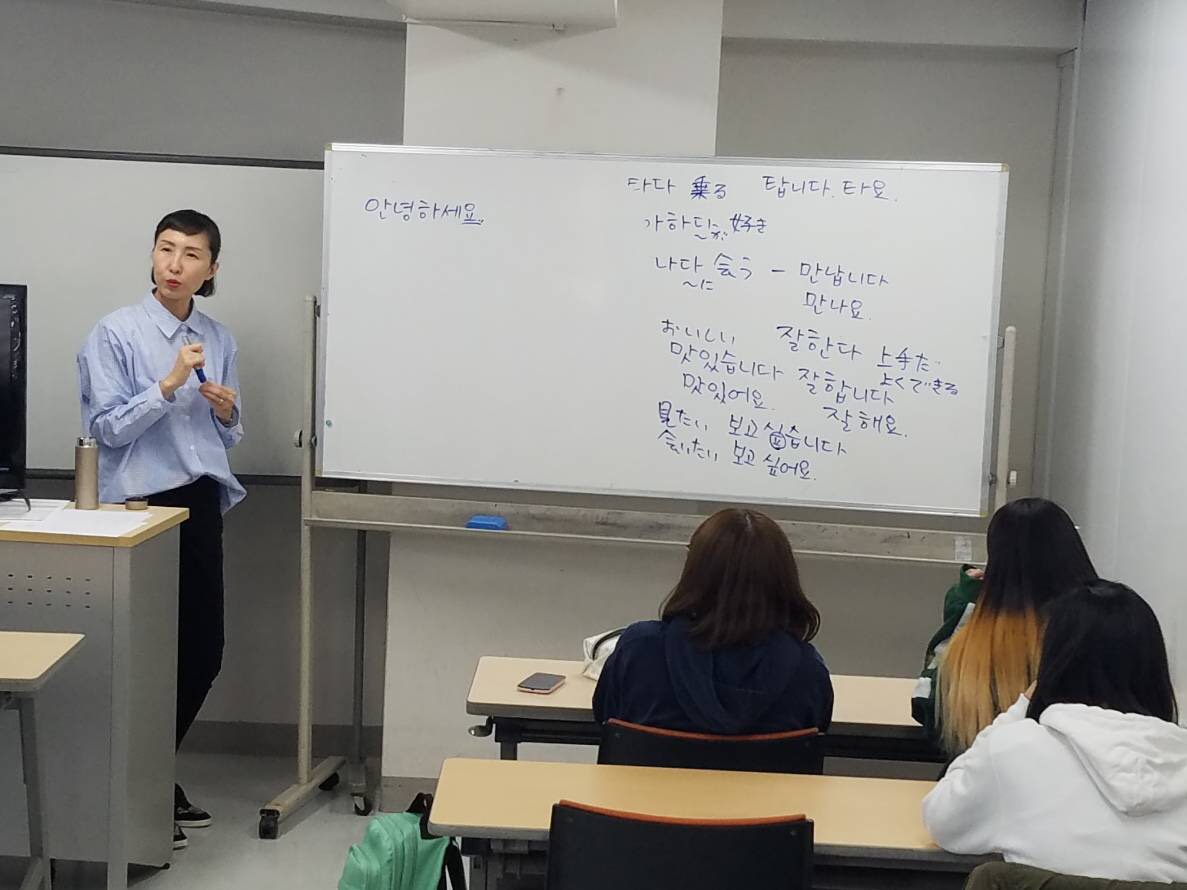 안녕하세요
타다 乗る 탑니다. 타요.
가하다 好き
~が
나다 会う － 만납니다
~に
만나요.
おいしい 잘한다 上手だ
맛있습니다 잘합니다 よくできる
맛있어요. 잘해요.
見たい 보고 싶습니다
会いたい 보고 싶어요.